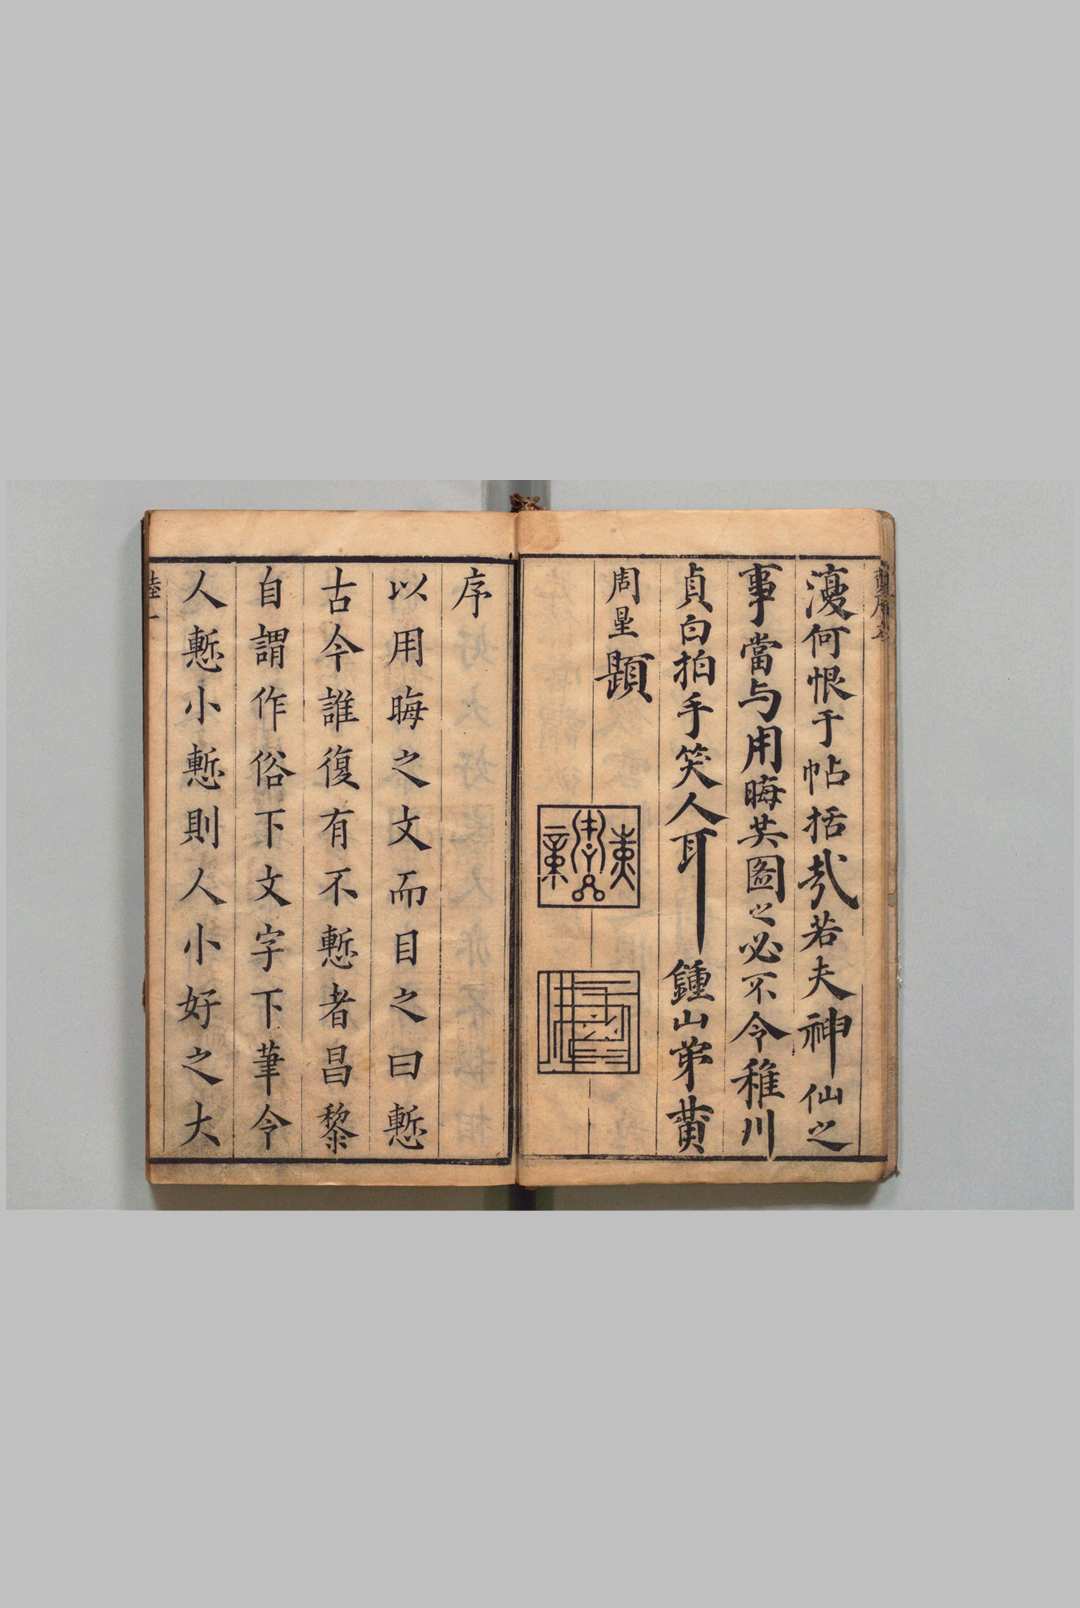 濅何恨于帖括哉若夫神仙之
事當与用晦共圖之必不令稚川
貞白拍手笑人耳 鍾山弟黄
周星題
序
以用晦之文而目之曰慙
古今誰復有不慙者昌黎
自謂作俗下文字下筆令
人慙小慙則人小好之大